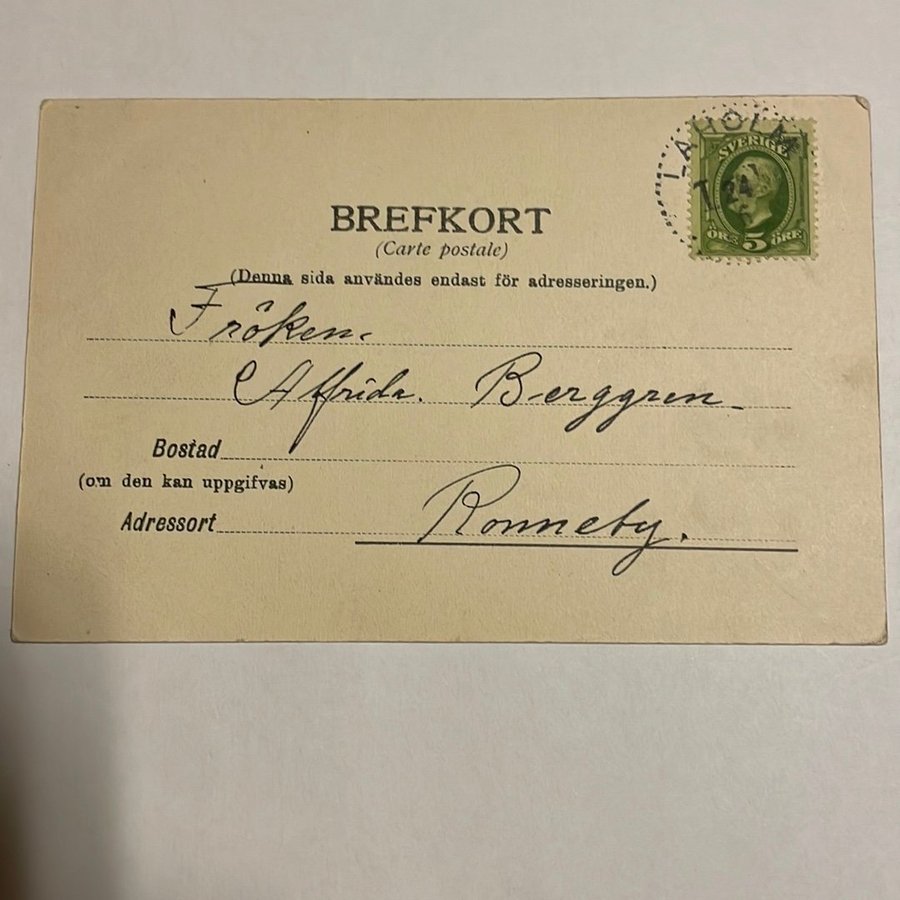 LAHOLM
SVERIGE
24
ÖRE 5 ÖRE
BREFKORT
(Carte postale)
(Denna sida användes endast för adresseringen.)
Fröken.
Affrida. Berggren
Bostad
(om den kan uppgifvas)
Ronneby.
Adressort